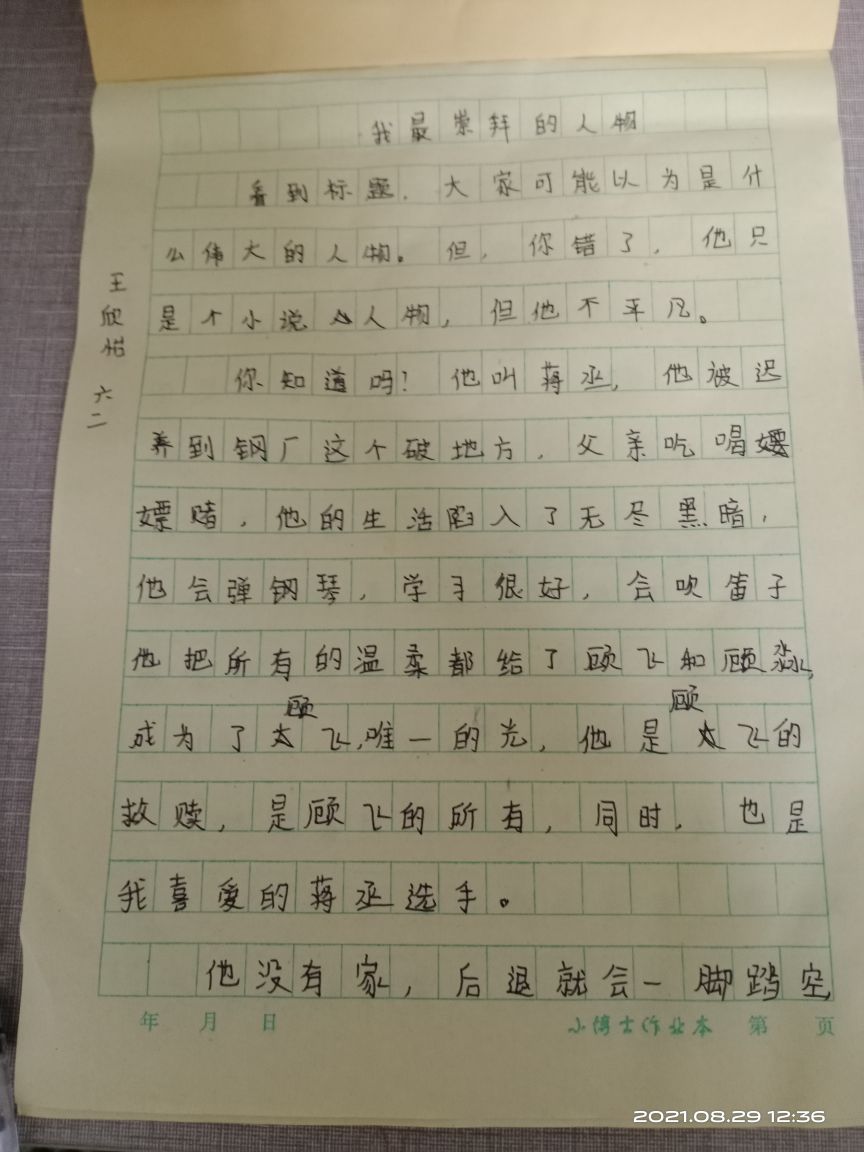 我最崇拜的人物
看到标题，大家可能以为是什
么伟大的人物。但，你错了，他只
是个小说人物，但他不平凡。
你知道吗？他叫蒋丞，他被迟
养到钢厂这个破地方，父亲吃喝嫖
嫖赌，他的生活陷入了无尽黑暗，
他会弹钢琴，学习很好，会吹笛子
他把所有的温柔都给了顾飞和顾淼，
成为了顾飞，唯一的光，他是顾飞的
救赎，是顾飞的所有，同时，也是
我喜爱的蒋丞选手。
他没有家，后退就会一脚踏空，
王欣怡 六二
年 月 日
小博士作业本 第 页
2021.08.29 12:36